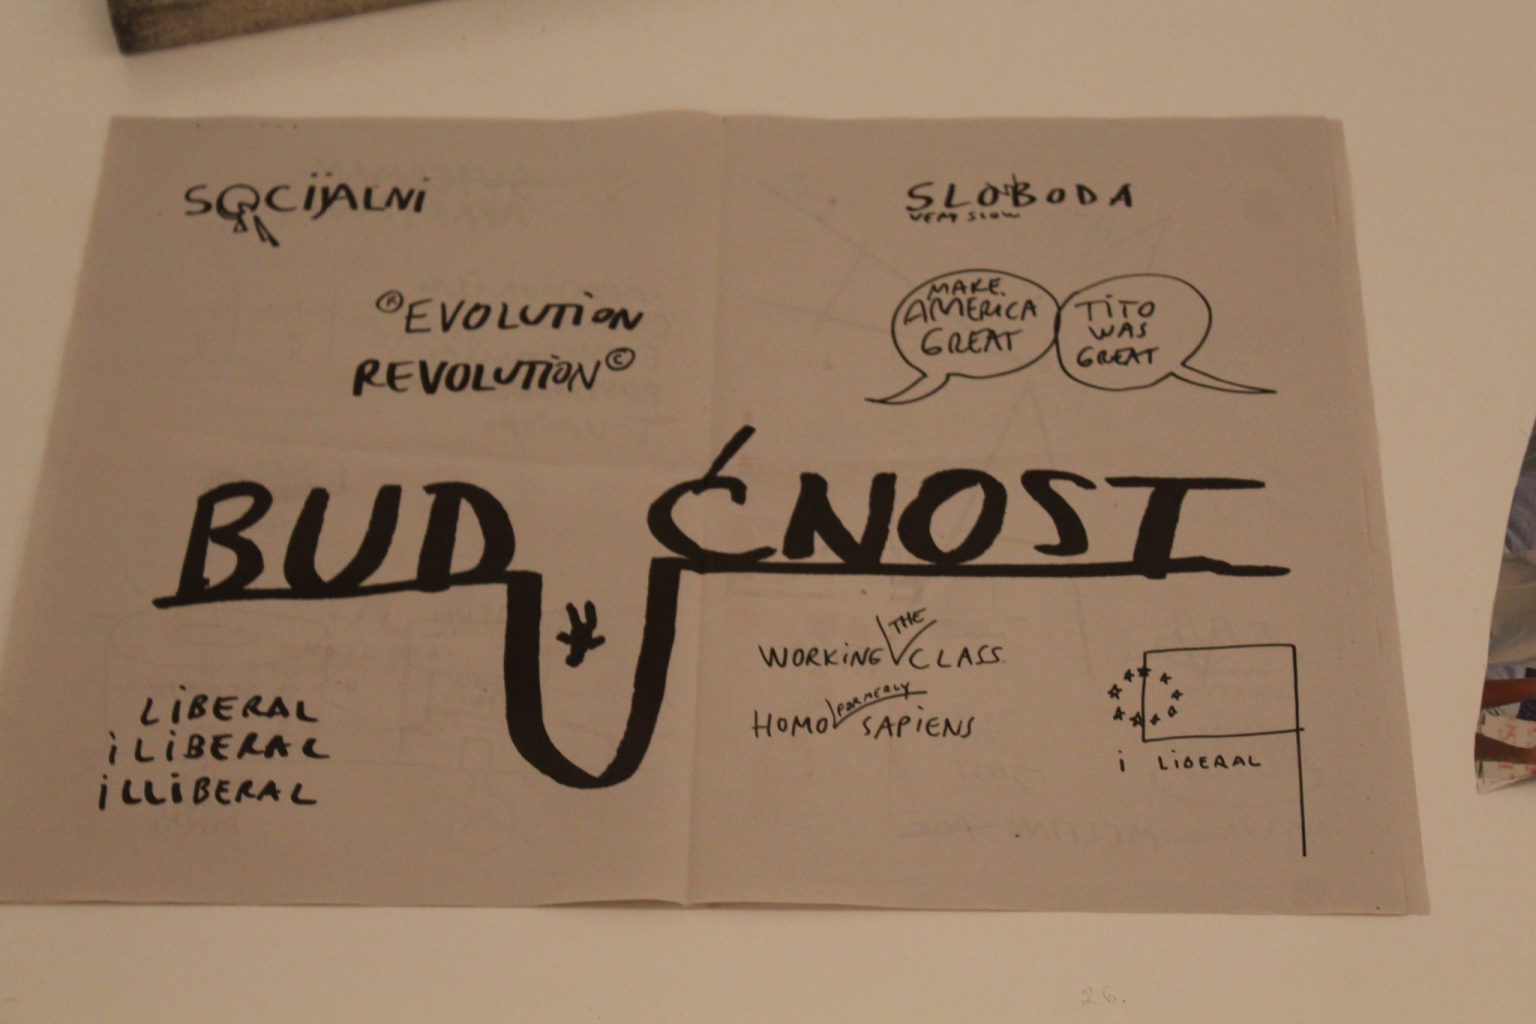 SOCIJALNI
®EVOLUTION
REVOLUTION©
SLOBODA
VERY SLOW
MAKE
AMERICA
GREAT
TITO
WAS
GREAT
BUDUĆNOST
LIBERAL
i LIBERAL
iLLIBERAL
WORKING THE CLASS
HOMO FORMERLY SAPIENS
i LIBERAL
26.